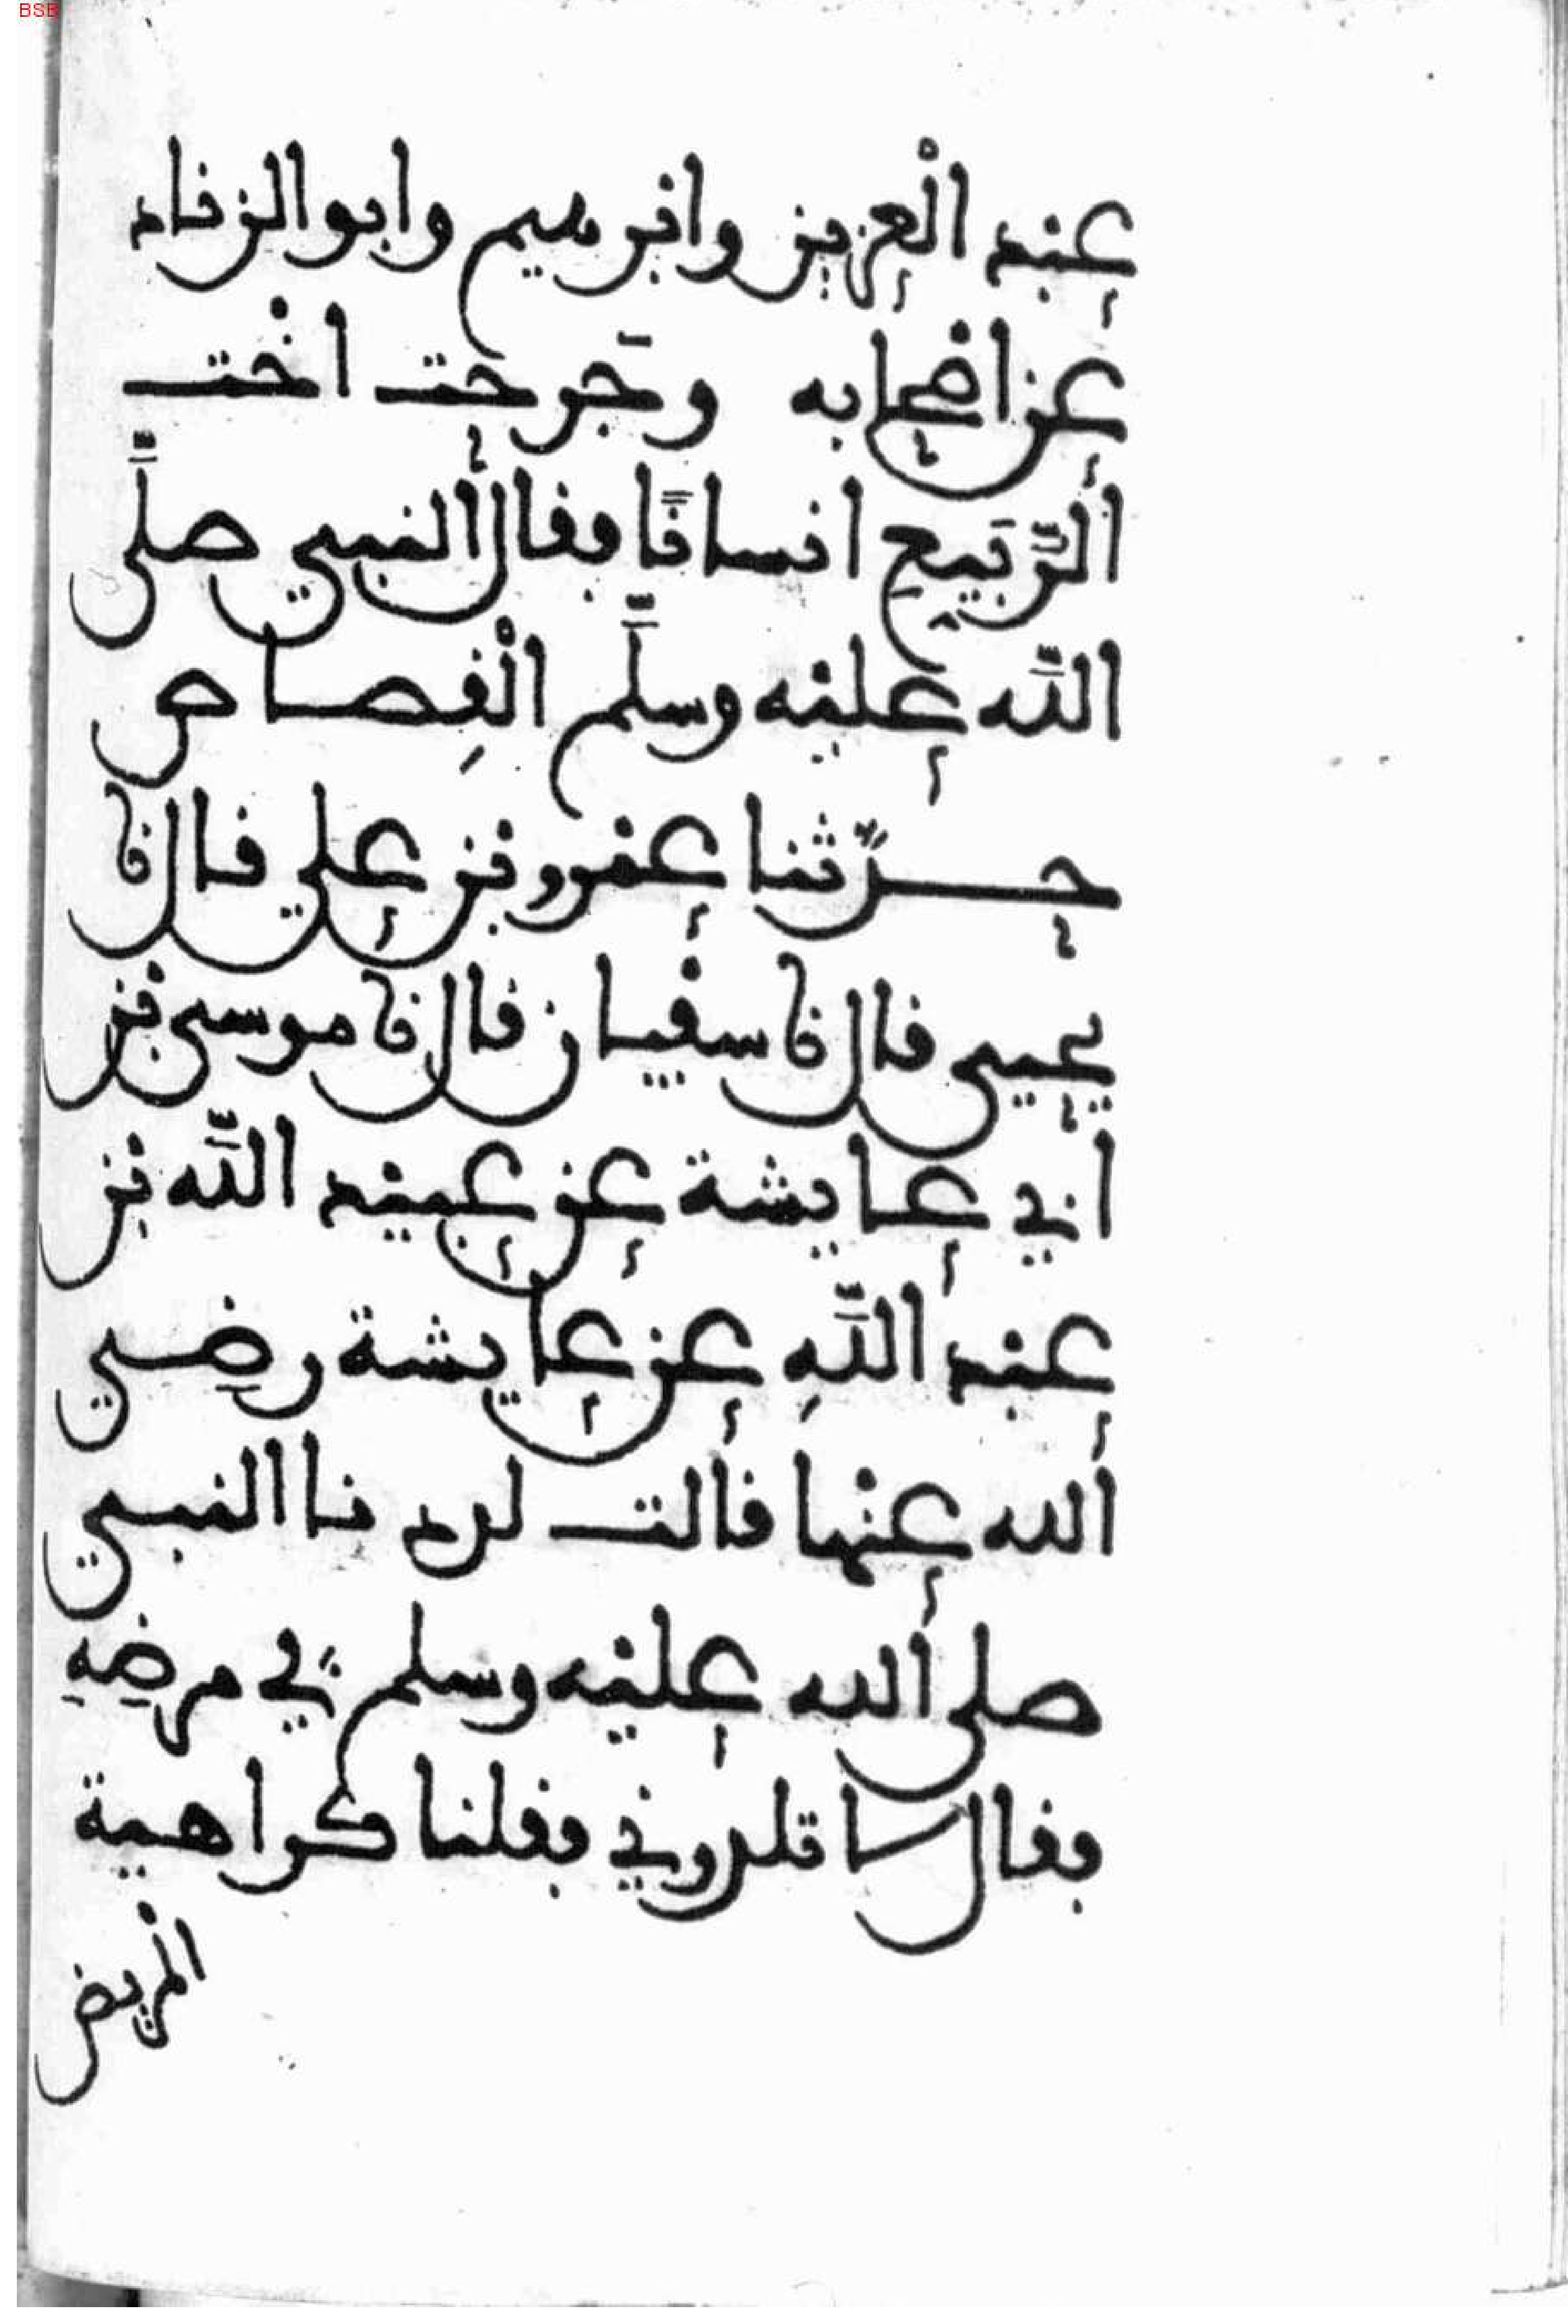 BSB
عبد الْعزيز وابرهيم وابو الزناد
عن اصْحابه وجَرحت اخْت
الرُّبَيِّع انسانًا فقال النبي صلَّى
اللَّه عليْه وسلَّم الْقِصاص
حدّثنا عمْرو بن علي قال نا
يحيى قال نا سفْيان قال نا موسى بن
ابي عايشة عن عبيد اللَّه بن
عبْد اللَّهِ عن عايشة رضِي
الله عنْها قالت لددنا النبي
صلى الله عليْه وسلم في مرضِهِ
فقال لا تلدوني فقلنا كراهية
الْمريض